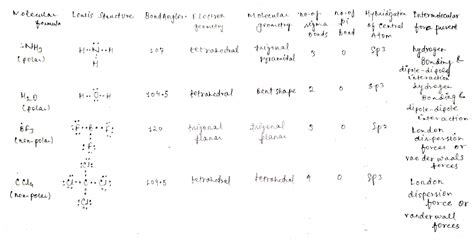 Molecular formula
Lewis Structure
Bond Angles
Electron geometry
Molecular geometry
no. of sigma bonds
no. of pi bond
Hybridization of central Atom
Intermolecular force present
NH3 (polar)
H N H
H
107
tetrahedral
trigonal pyramidal
3
0
Sp3
hydrogen Bonding & dipole-dipole interaction
H2O (polar)
H O H
104.5
tetrahedral
Bent shape
2
0
Sp3
hydrogen Bonding & dipole-dipole interaction
BF3 (non-polar)
F F
F
120
trigonal planar
trigonal planar
3
0
Sp2
London dispersion forces or vander waals forces
CCl4 (non-polar)
Cl
Cl C Cl
Cl
109.5
tetrahedral
tetrahedral
4
0
Sp3
London dispersion force or vander wall forces